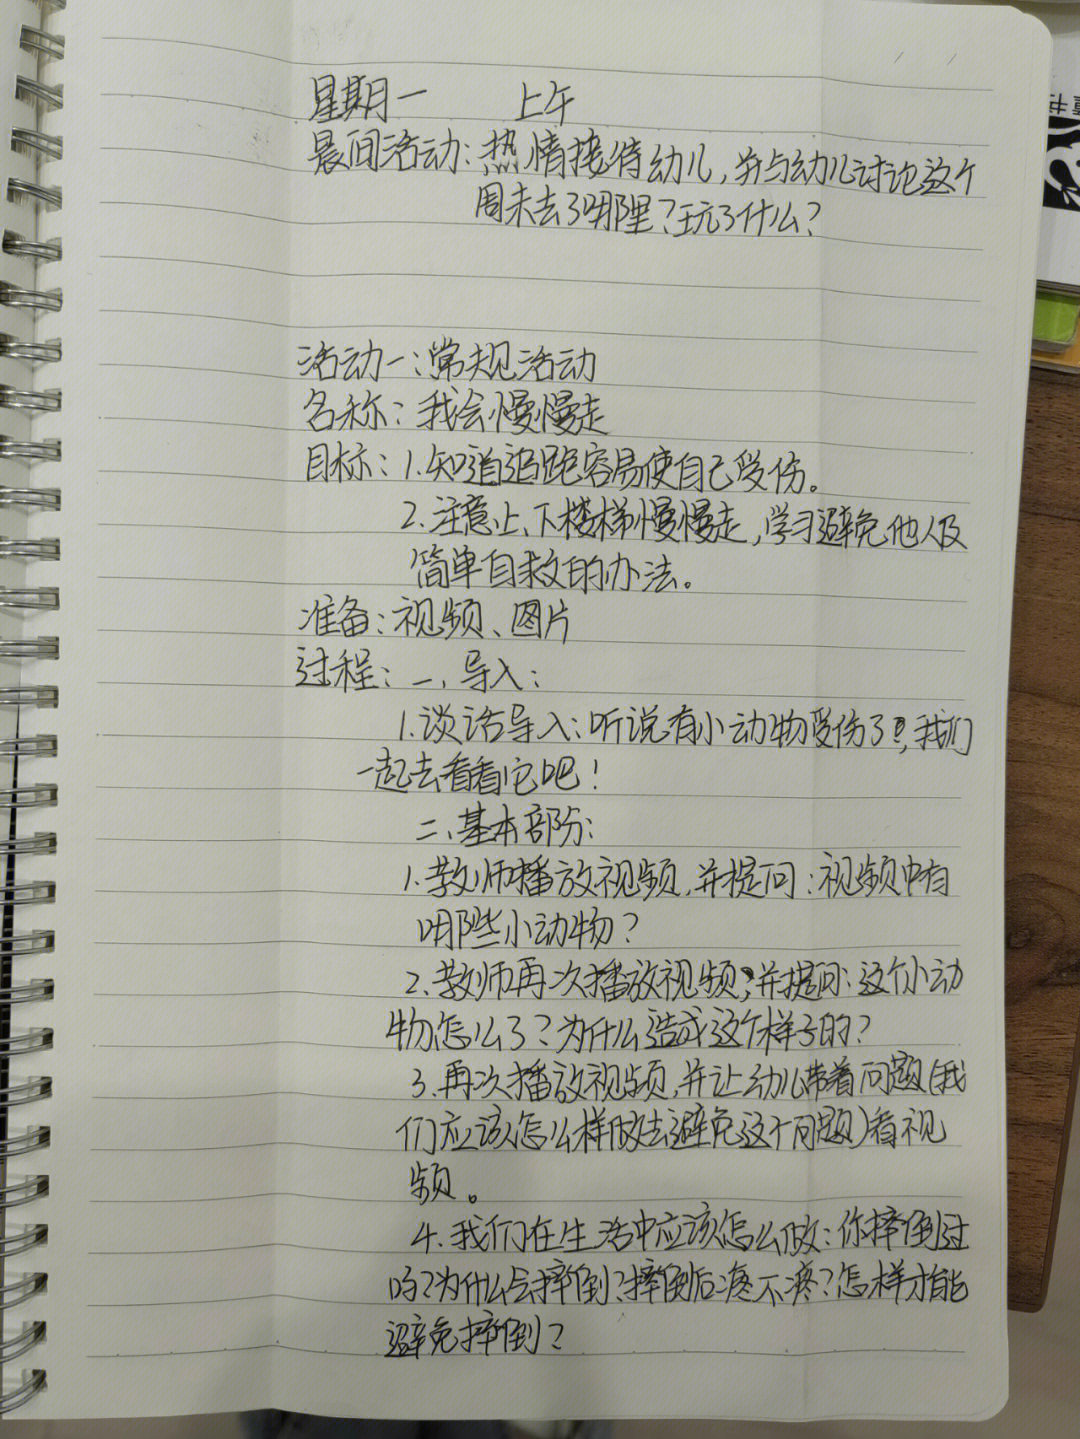 星期一 上午
晨间活动：热情接待幼儿，并与幼儿讨论这个
周末去了哪里？玩了什么？
活动一：常规活动
名称：我会慢慢走
目标：1.知道追跑容易使自己受伤。
2.注意上、下楼梯慢慢走，学习避免他人及
简单自救的办法。
准备：视频、图片
过程：一、导入：
1.谈话导入：听说有小动物受伤了，我们
一起去看看它吧！
二、基本部分：
1.教师播放视频，并提问：视频中有
哪些小动物？
2.教师再次播放视频，并提问：这个小动
物怎么了？为什么造成这个样子的？
3.再次播放视频，并让幼儿带着问题（我
们应该怎么样做去避免这个问题）看视
频。
4.我们在生活中应该怎么做：你摔倒过
吗？为什么会摔倒？摔倒后疼不疼？怎样才能
避免摔倒？